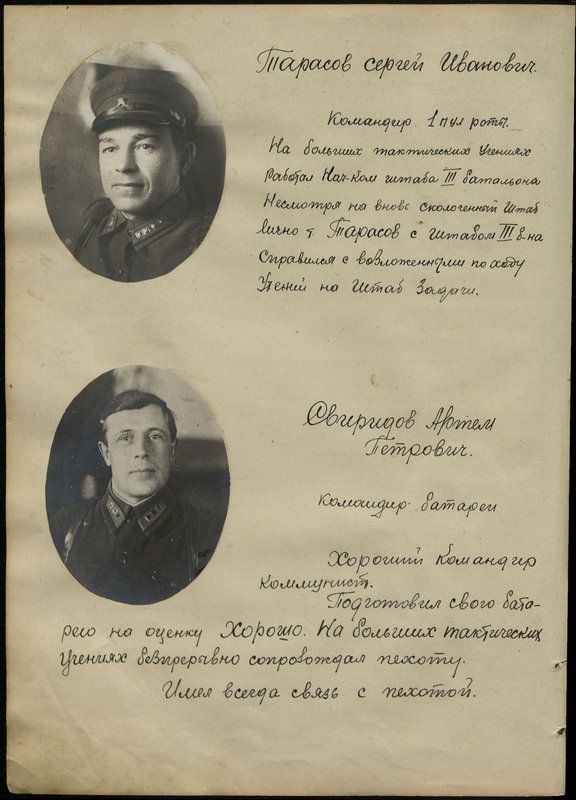 Тарасов Сергей Иванович.
Командир 1 пул роты.
На больших тактических Учениях
Работал Нач-ком штаба III батальона
Несмотря на вновь сколоченный Штаб
Лично т. Тарасов с штабом III б-на
Справился с возложенными по ходу
Учений на Штаб Задачи.
Свиридов Артем
Петрович.
Командир батареи
Хороший Командир
Коммунист.
Подготовил свого бата-
рею на оценку Хорошо. На больших тактических
Учениях безпрерывно сопровождал пехоту.
Имея всегда связь с пехотой.